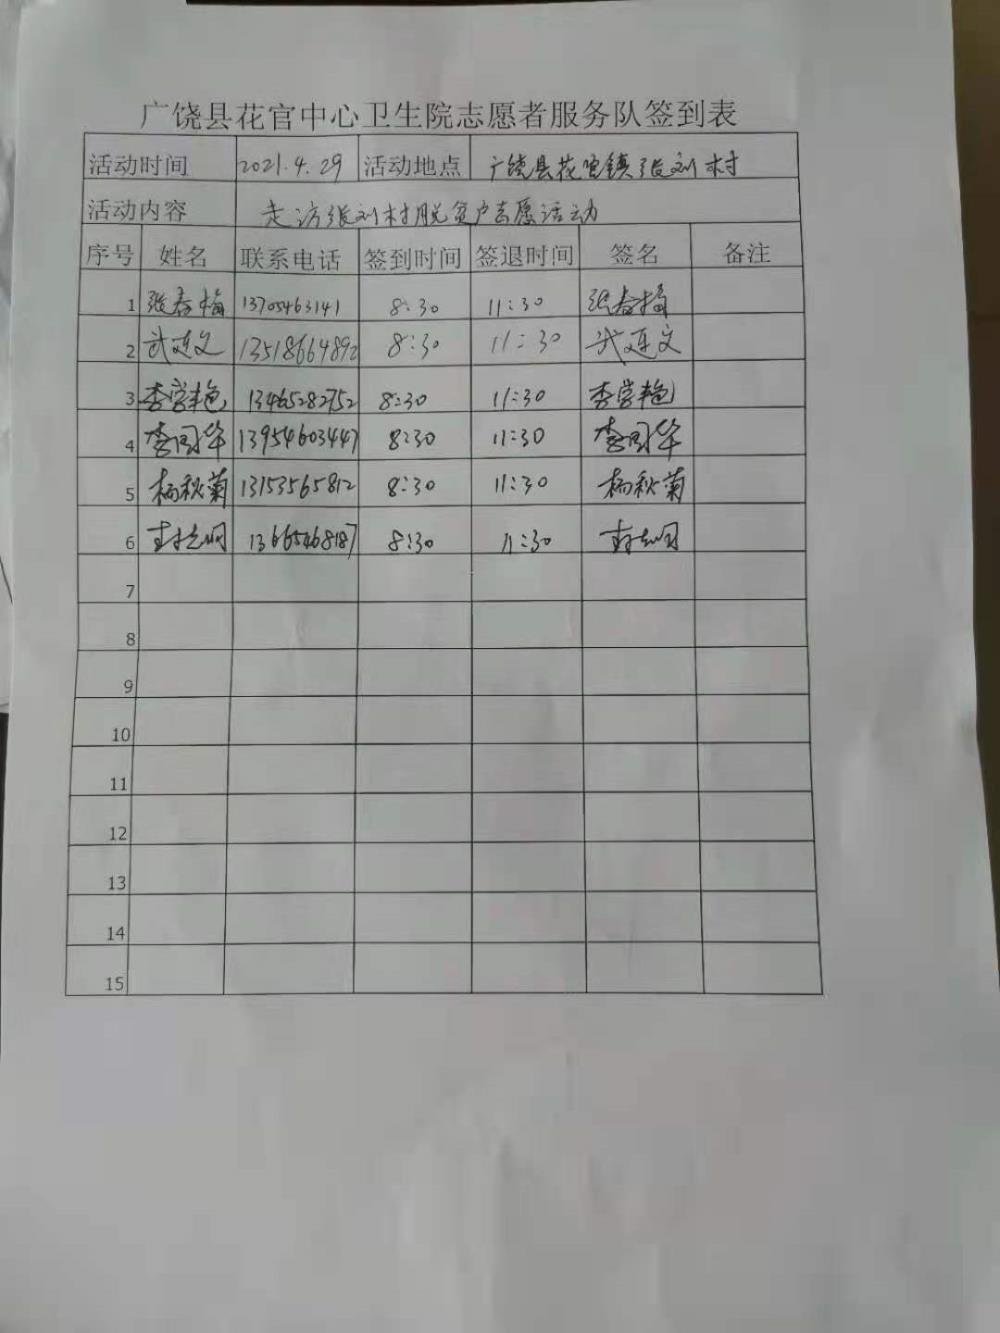 广饶县花官中心卫生院志愿者服务队签到表
活动时间 2021.4.29 活动地点 广饶县花官镇张刘村
活动内容 走访张刘村脱贫户志愿活动
序号 姓名 联系电话 签到时间 签退时间 签名 备注
1 张春梅 13705463141 8:30 11:30 张春梅
2 武连文 13518664892 8:30 11:30 武连文
3 李学艳 13465282752 8:30 11:30 李学艳
4 李国华 13954603447 8:30 11:30 李国华
5 杨秋菊 13153565812 8:30 11:30 杨秋菊
6 13665468187 8:30 11:30
7
8
9
10
11
12
13
14
15